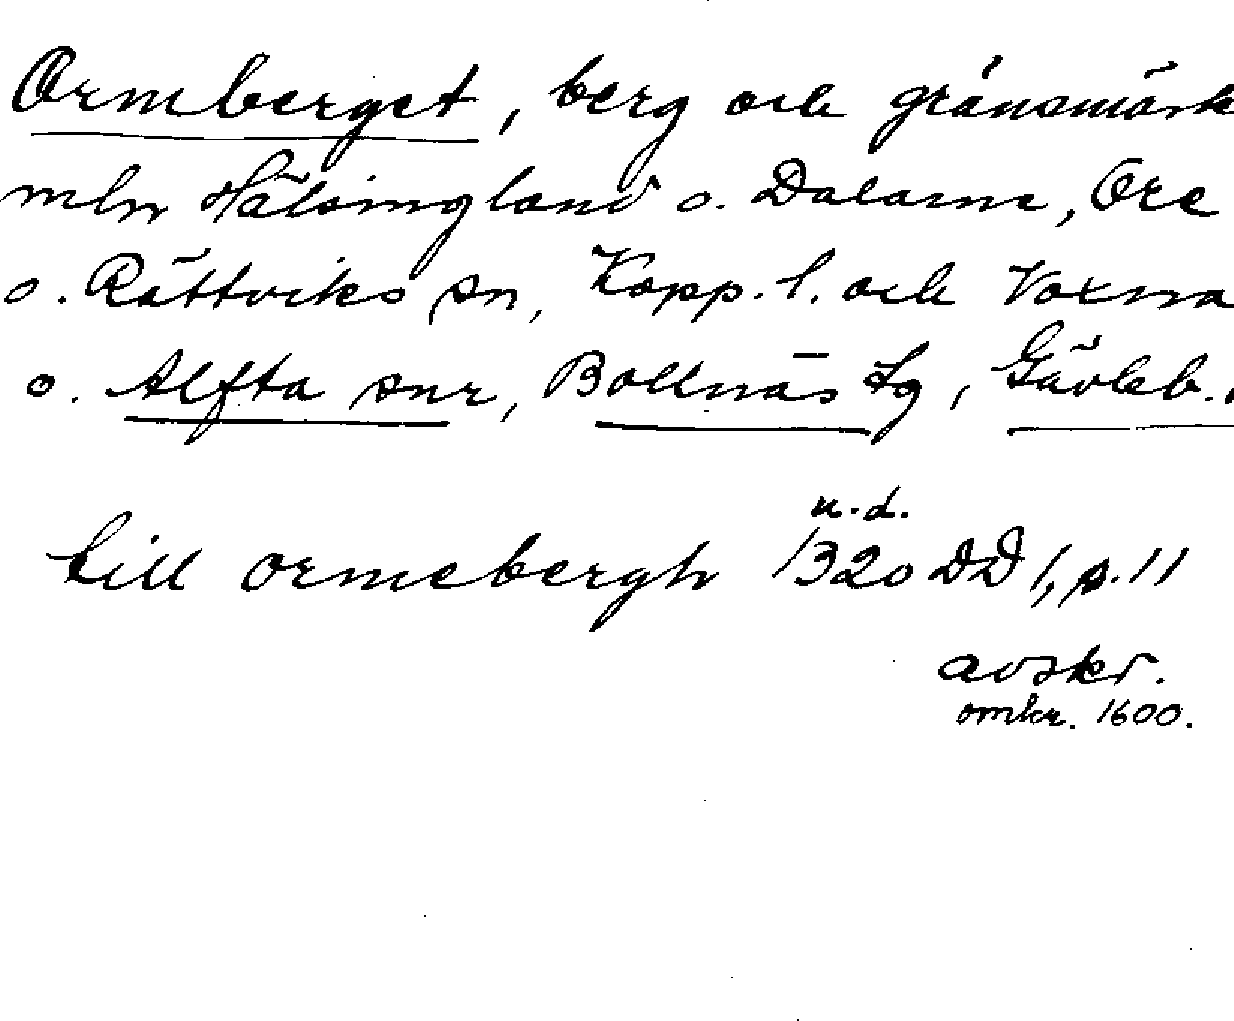 Ormberget, berg och gränsmärk
mln Hälsingland o. Dalarne, Ore
o. Rättviks sn, Kopp. l. och Voxna
o. Alfta snr, Bollnäs tg, Gävleb.
u.d.
till ormebergh 1320 DD 1, s. 11
avskr.
omkr. 1600.